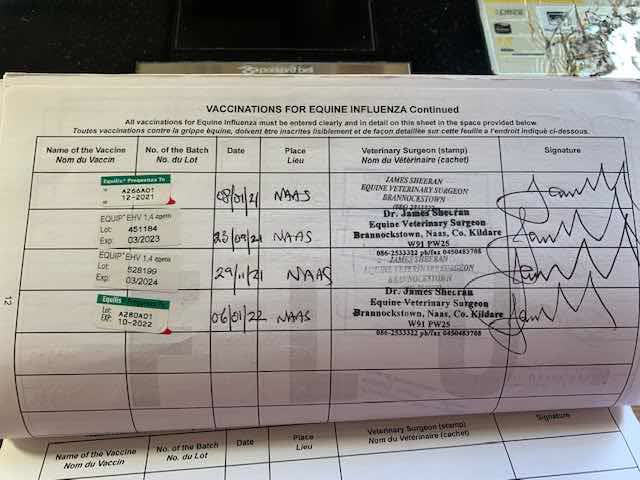 packard bell
VACCINATIONS FOR EQUINE INFLUENZA Continued
All vaccinations for Equine Influenza must be entered clearly and in detail on this sheet in the space provided below.
Toutes vaccinations contre la grippe équine, doivent être inscrites lisiblement et de façon detaillée sur cette feuille a l'endroit indiqué ci-dessous.
Name of the Vaccine No. of the Batch Date Place Veterinary Surgeon (stamp) Signature
Nom du Vaccin No. du Lot Lieu Nom du Vétérinaire (cachet)
Equilis Prequenza Te
A266A01
12-2021
08/01/21 NAAS
JAMES SHEERAN
EQUINE VETERINARY SURGEON
BRANNOCKSTOWN
EQUIP EHV 1,4
Lot: 451184
Exp: 03/2023
23/09/21 NAAS
Dr. James Sheeran
Equine Veterinary Surgeon
Brannockstown, Naas, Co. Kildare
W91 PW25
086-2533322 ph/fax 0450483708
EQUIP EHV 1,4
Lot: 528199
Exp: 03/2024
29/11/21 NAAS
JAMES SHEERAN
EQUINE VETERINARY SURGEON
Equilis Prequenza Te
Lot: A280A01
EXP: 10-2022
06/01/22 NAAS
Dr. James Sheeran
Equine Veterinary Surgeon
Brannockstown, Naas, Co. Kildare
W91 PW25
086-2533322 ph/fax 0450483708
12
Name of the Vaccine No. of the Batch Date Place Veterinary Surgeon (stamp) Signature
Nom du Vaccin No. du Lot Lieu Nom du Vétérinaire (cachet)